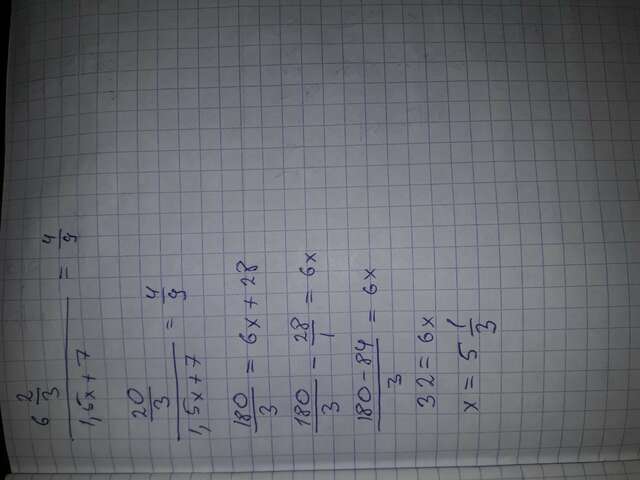 6 2/3 / 1,5x + 7 = 4/9
20/3 / 1,5x + 7 = 4/9
180/3 = 6x + 28
180/3 - 28/1 = 6x
180 - 84 / 3 = 6x
32 = 6x
x = 5 1/3